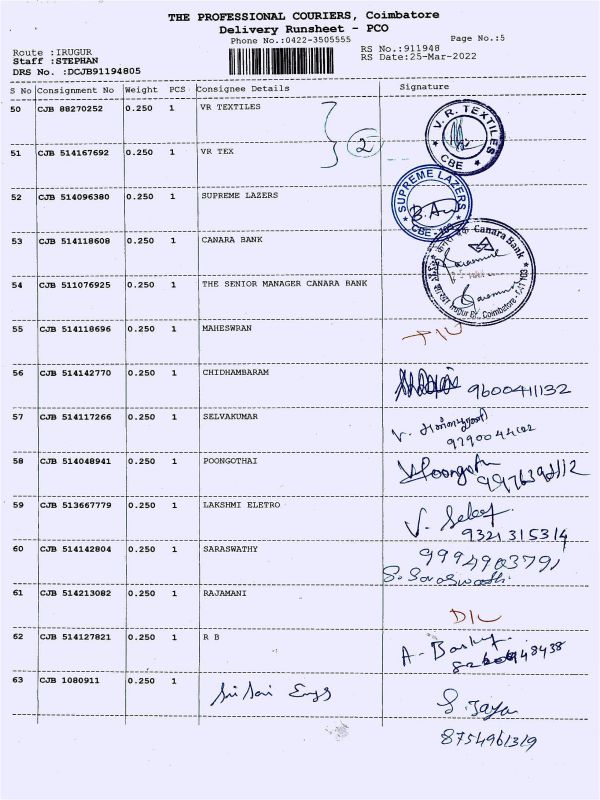 THE PROFESSIONAL COURIERS, Coimbatore
Delivery Runsheet - PCO
Phone No.:0422-3505555 Page No.:5
Route :IRUGUR RS No.:911948
Staff :STEPHAN RS Date:25-Mar-2022
DRS No. :DCJB91194805
S No Consignment No Weight PCS Consignee Details Signature
50 CJB 88270252 0.250 1 VR TEXTILES
V. R. TEXTILES
★ CBE ★
2
51 CJB 514167692 0.250 1 VR TEX
52 CJB 514096380 0.250 1 SUPREME LAZERS
SUPREME LAZERS
53 CJB 514118608 0.250 1 CANARA BANK
Canara Bank
54 CJB 511076925 0.250 1 THE SENIOR MANAGER CANARA BANK
Irugur Br., Coimbatore
55 CJB 514118696 0.250 1 MAHESWRAN
56 CJB 514142770 0.250 1 CHIDHAMBARAM
9600411132
57 CJB 514117266 0.250 1 SELVAKUMAR
V.
58 CJB 514048941 0.250 1 POONGOTHAI
59 CJB 513667779 0.250 1 LAKSHMI ELETRO
V.
9321315314
60 CJB 514142804 0.250 1 SARASWATHY
9994903791
S. Saraswathi
61 CJB 514213082 0.250 1 RAJAMANI
D/L
62 CJB 514127821 0.250 1 R B
63 CJB 1080911 0.250 1 Sri Sai Engg
S. Jaya
8754961319